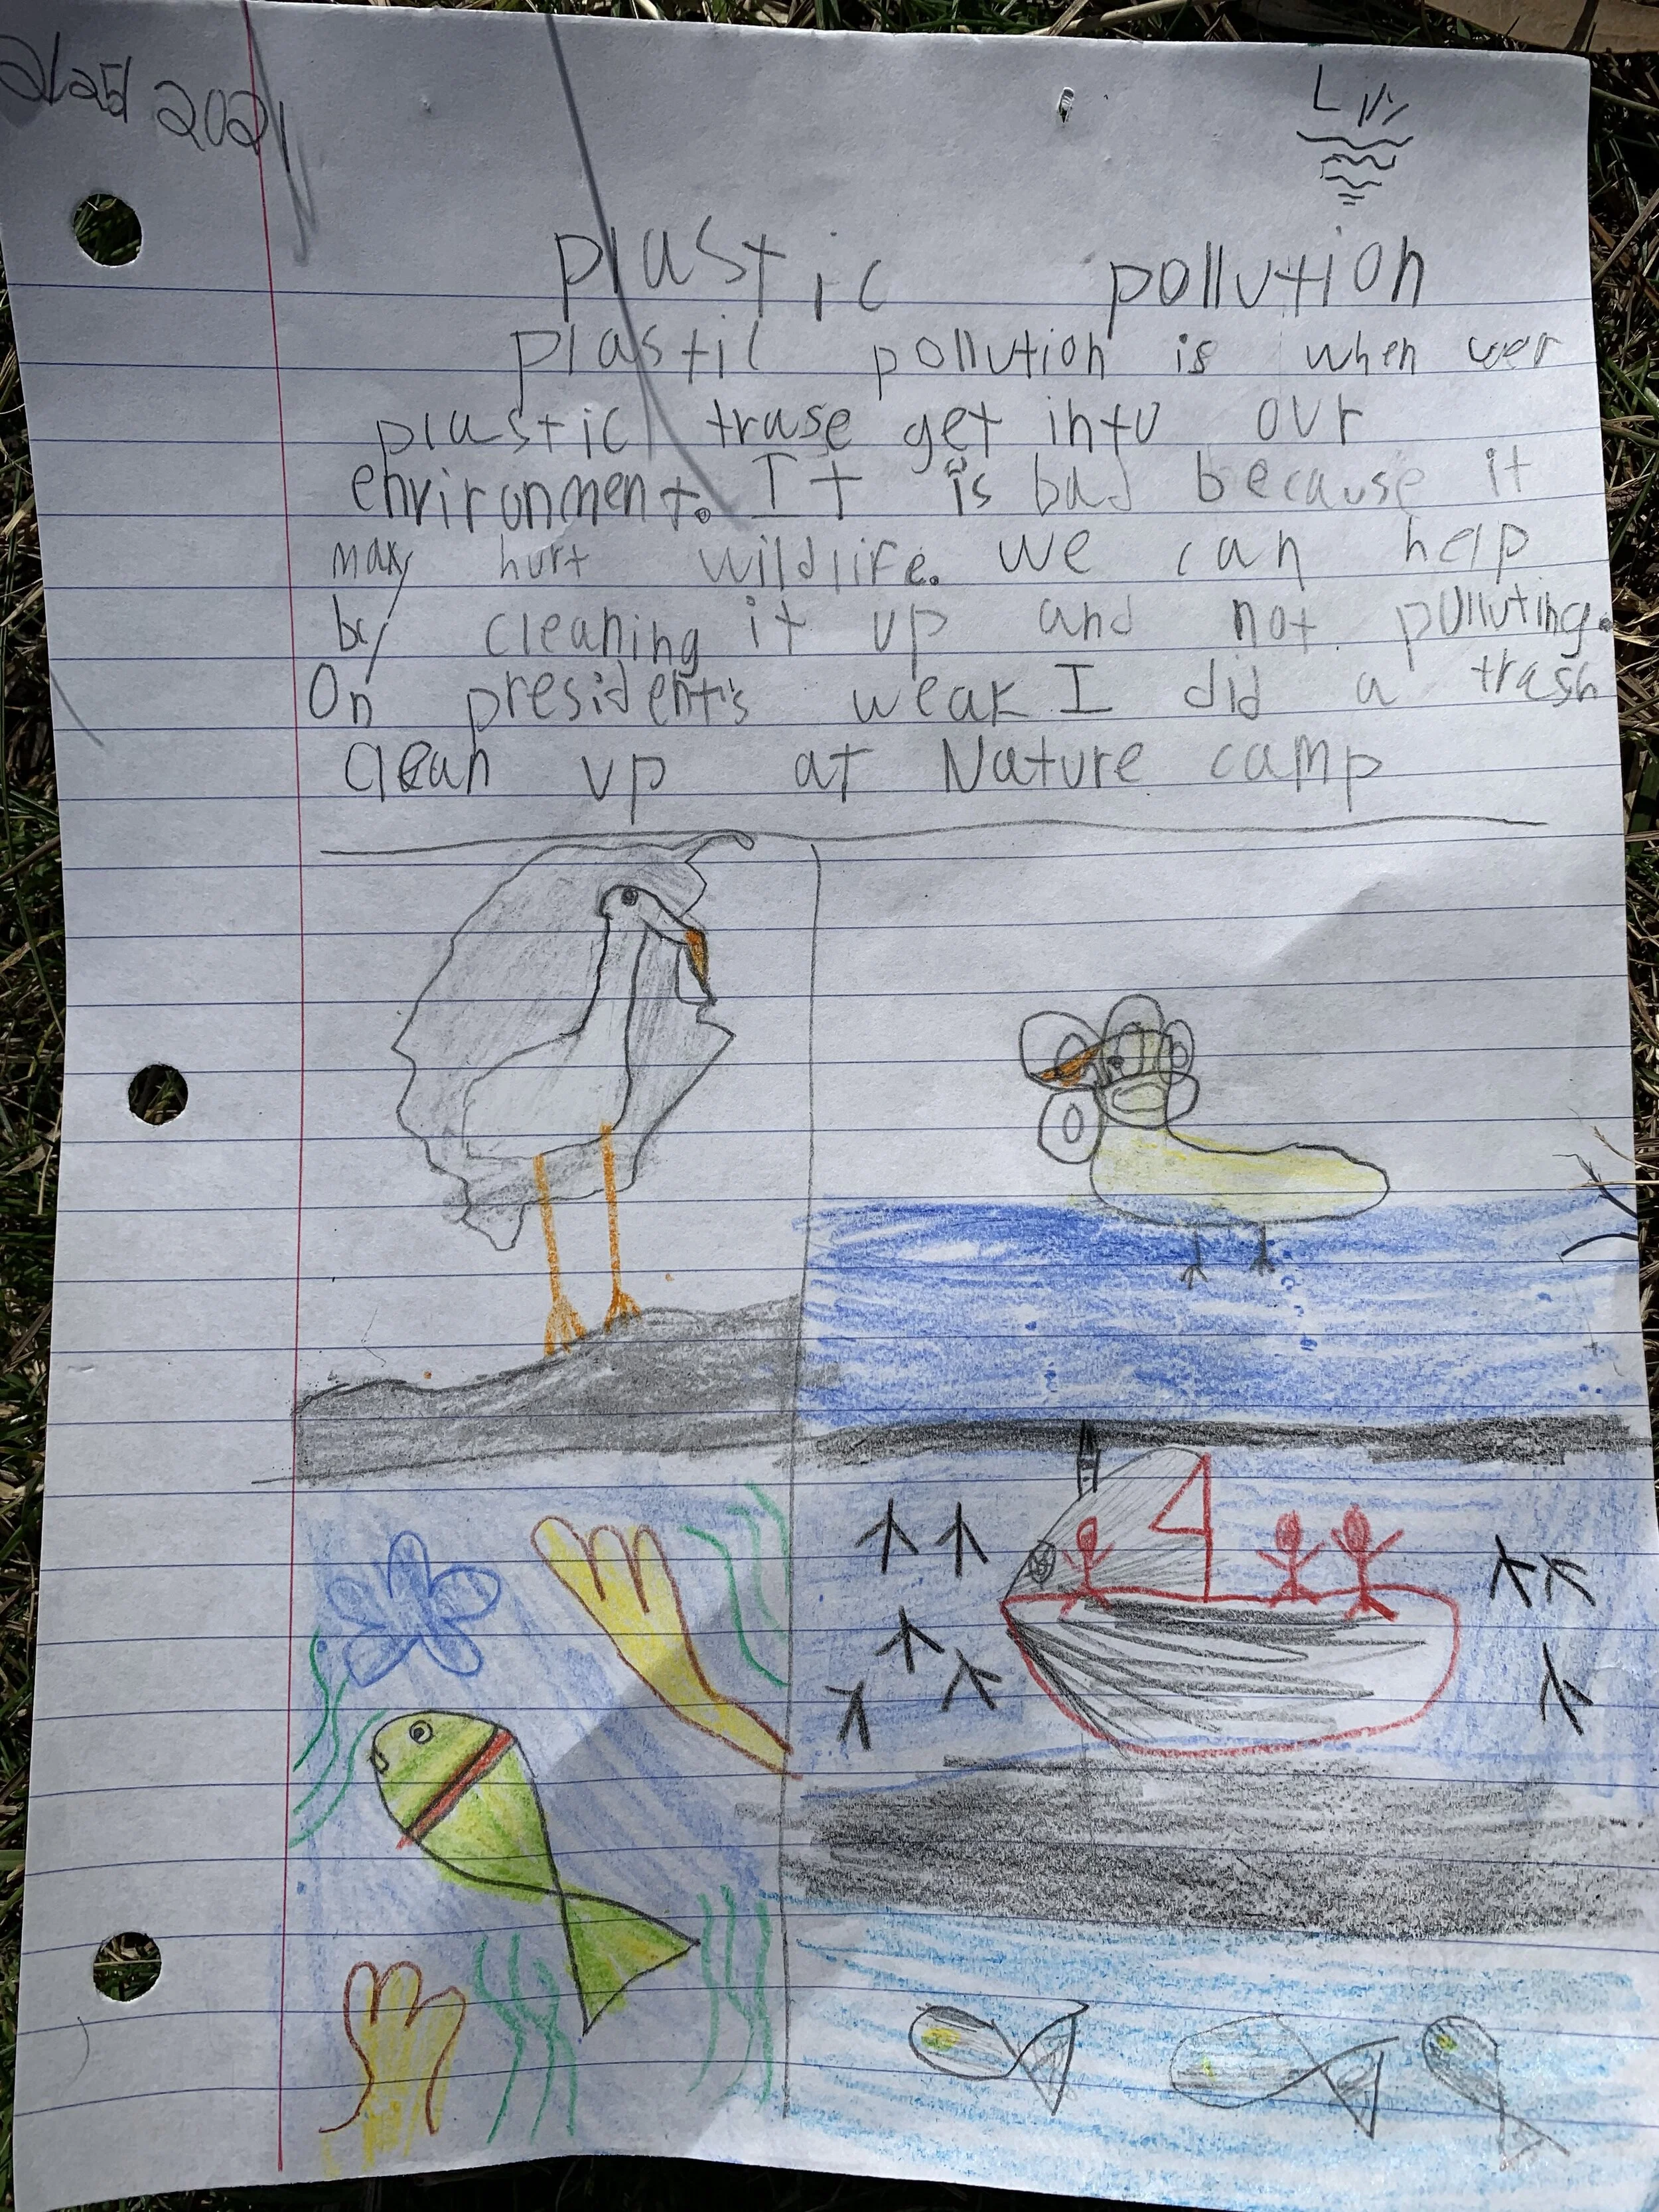 2/25/2021
Lily
plastic pollution
plastil pollution is when wer
plastic truse get into our
environment. It is bad because it
may hurt wildlife. we can help
by cleaning it up and not polluting.
On president's weak I did a trash
clean up at Nature camp